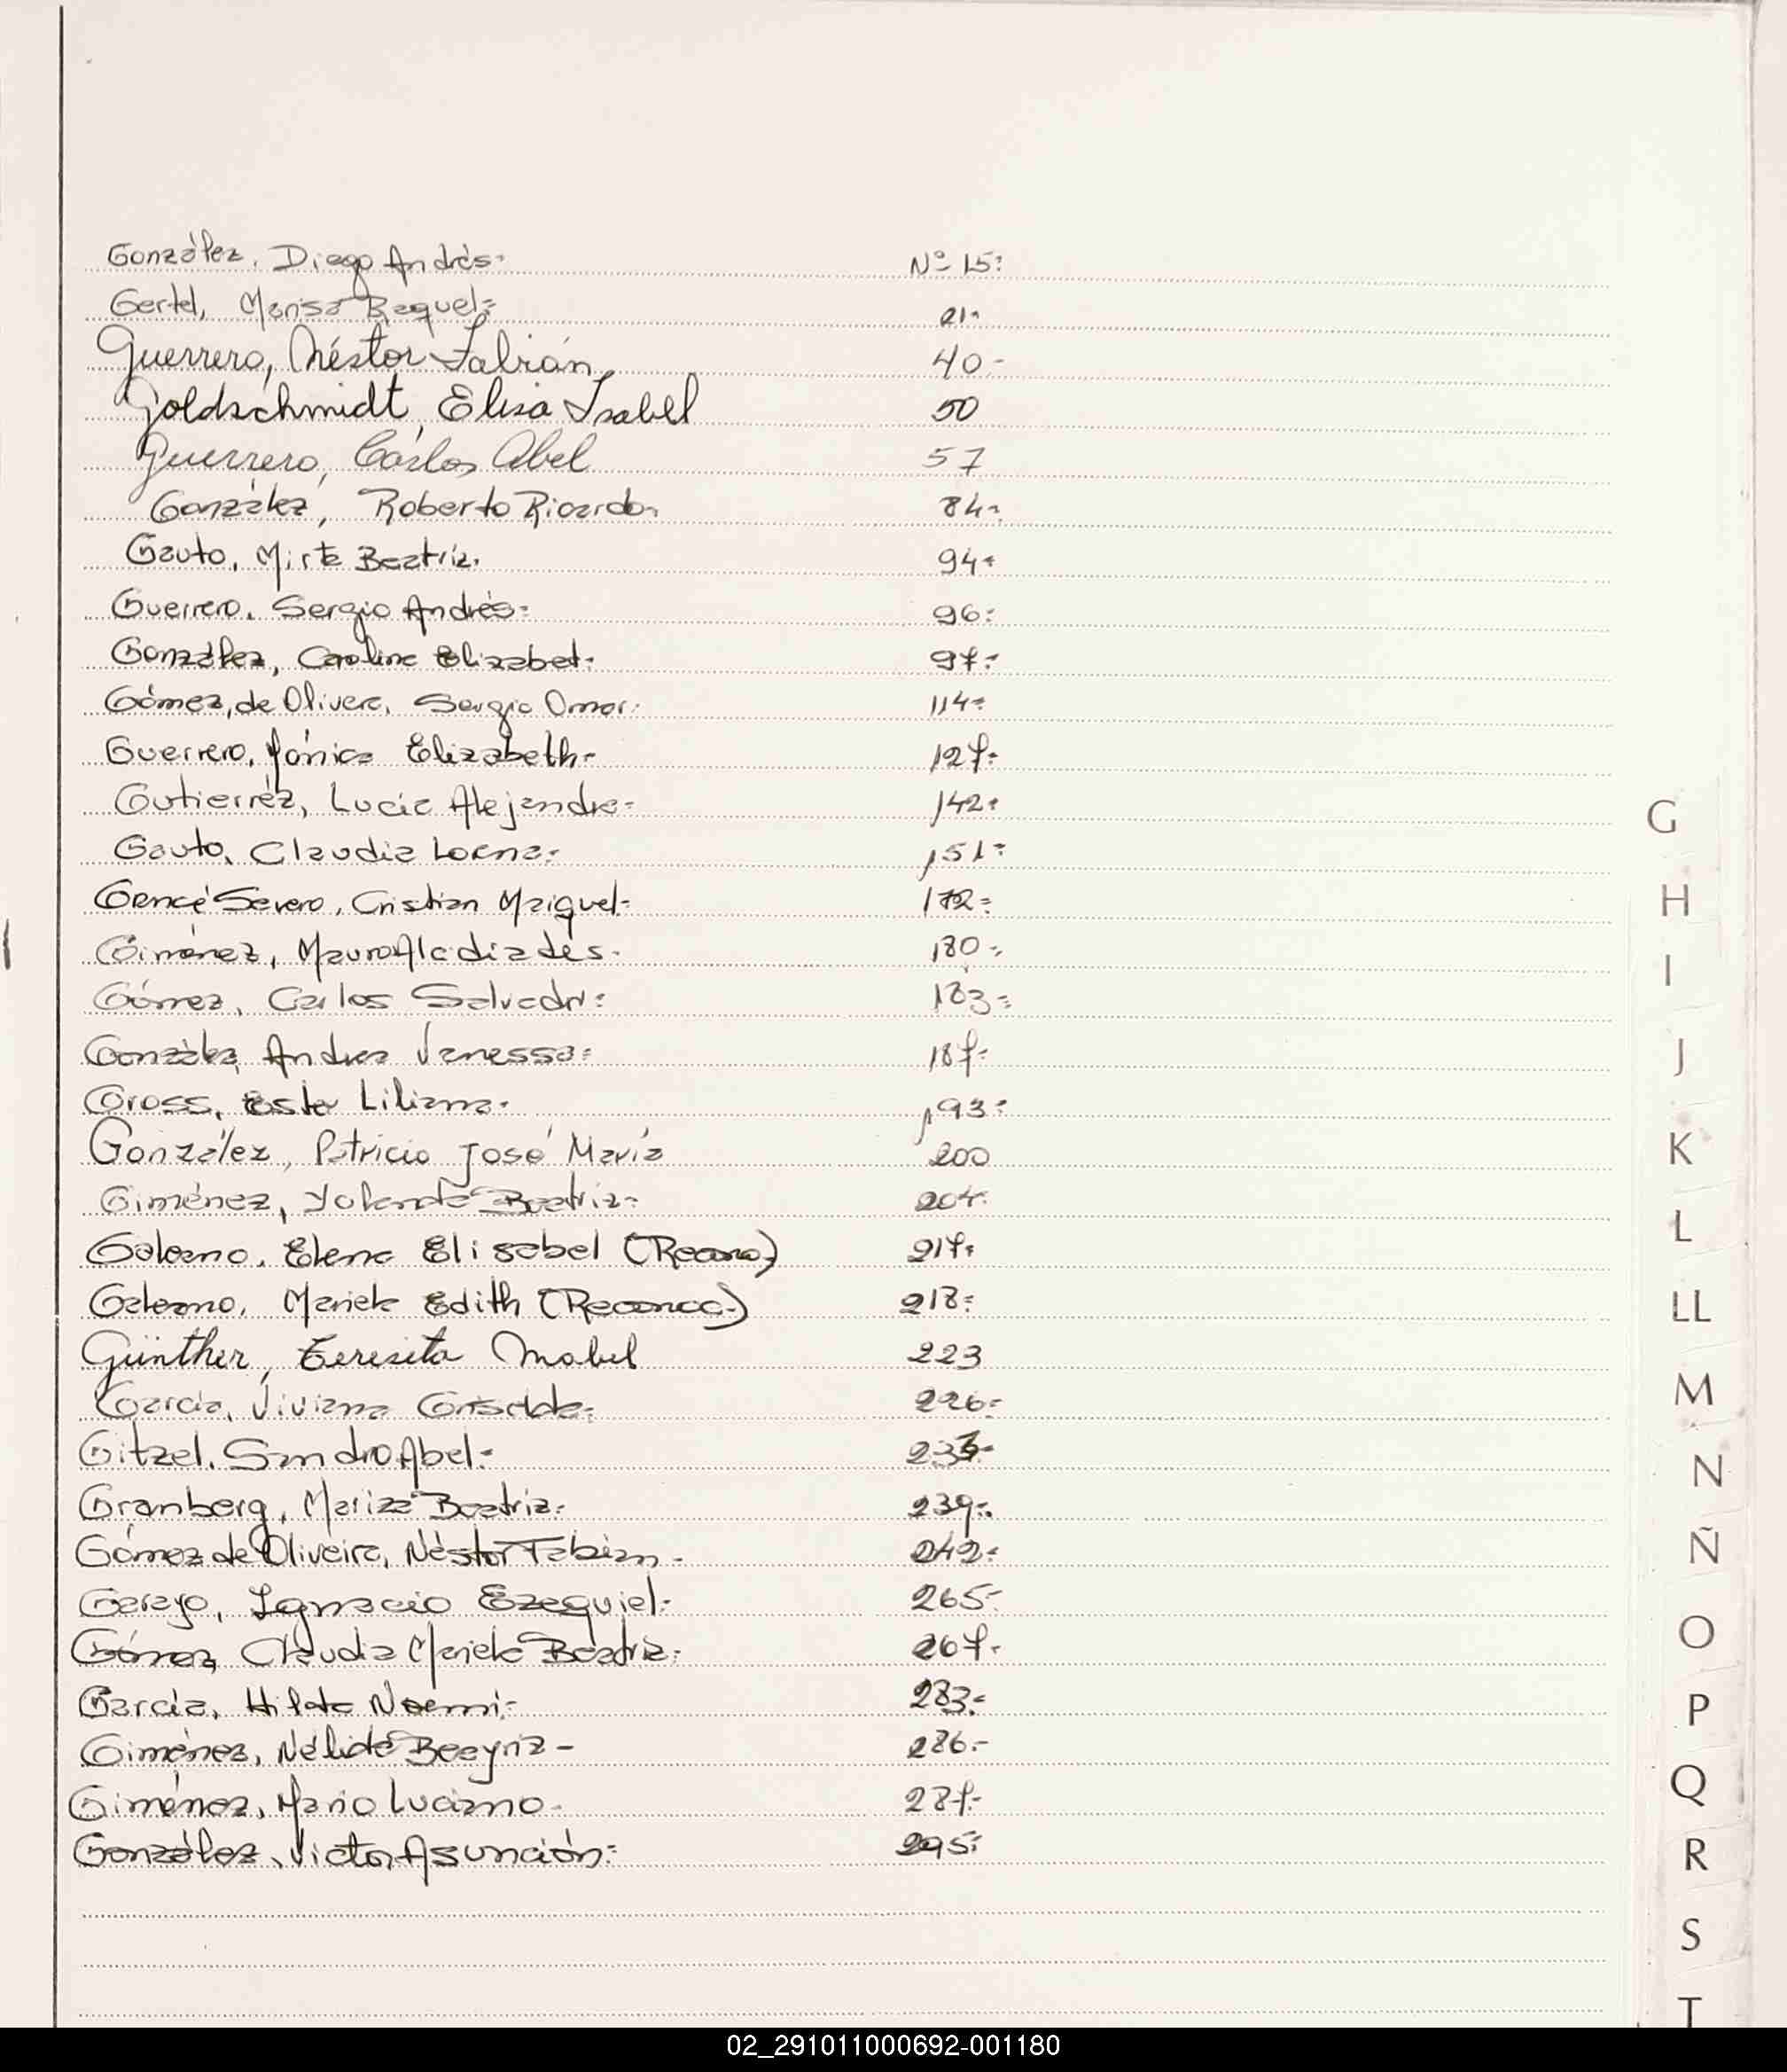 González, Diego Andrés.- Nº 15:
Gertel, Marisa Raquel:- 21-
Guerrero, Néstor Fabián. 40-
Goldschmidt, Elisa Isabel 50
Guerrero, Carlos Abel 57
González, Roberto Ricardo. 84-
Gauto, Mirta Beatriz. 94-
Guerrero, Sergio Andrés:- 96:
González, Carolina Elizabet:- 97:-
Gómez, de Olivera, Sergio Omar:- 114:-
Guerrero, Mónica Elizabeth- 127:-
Gutierréz, Lucía Alejandra- 142:
Gauto, Claudia Lorena:- 151:-
Severo, Cristian Maiquel- 172:-
Giménez, Mauro 180-
Gómez, Carlos Salvador:- 183:-
González, Andrea Vanessa:- 187:-
Gross, Ester Liliana.- 193:-
González, Patricio José María 200
Giménez, Yolanda Beatriz:- 204:
Galeano, Elena Elisabel 217:
Galeano, Mariela Edith 218:
Günther, Teresita Mabel 223
García, Viviana Griselda:- 226:-
Gitzel, Sandro Abel:- 233-
Granberg, Mariza Beatriz:- 239:-
Gómez de Oliveira, Néstor Fabian.- 242:-
Garayo, Ignacio Ezequiel:- 265:-
Gómez, Claudia Mariela Beatriz:- 267-
García, Hilda Noemi:- 283:-
Giménez, Nélida Beayriz- 286.-
Giménez, Mario Luciano- 287-
González, Victor Asunción:- 295:
G
H
I
J
K
L
LL
M
N
Ñ
O
P
Q
R
S
T
02_291011000692-001180